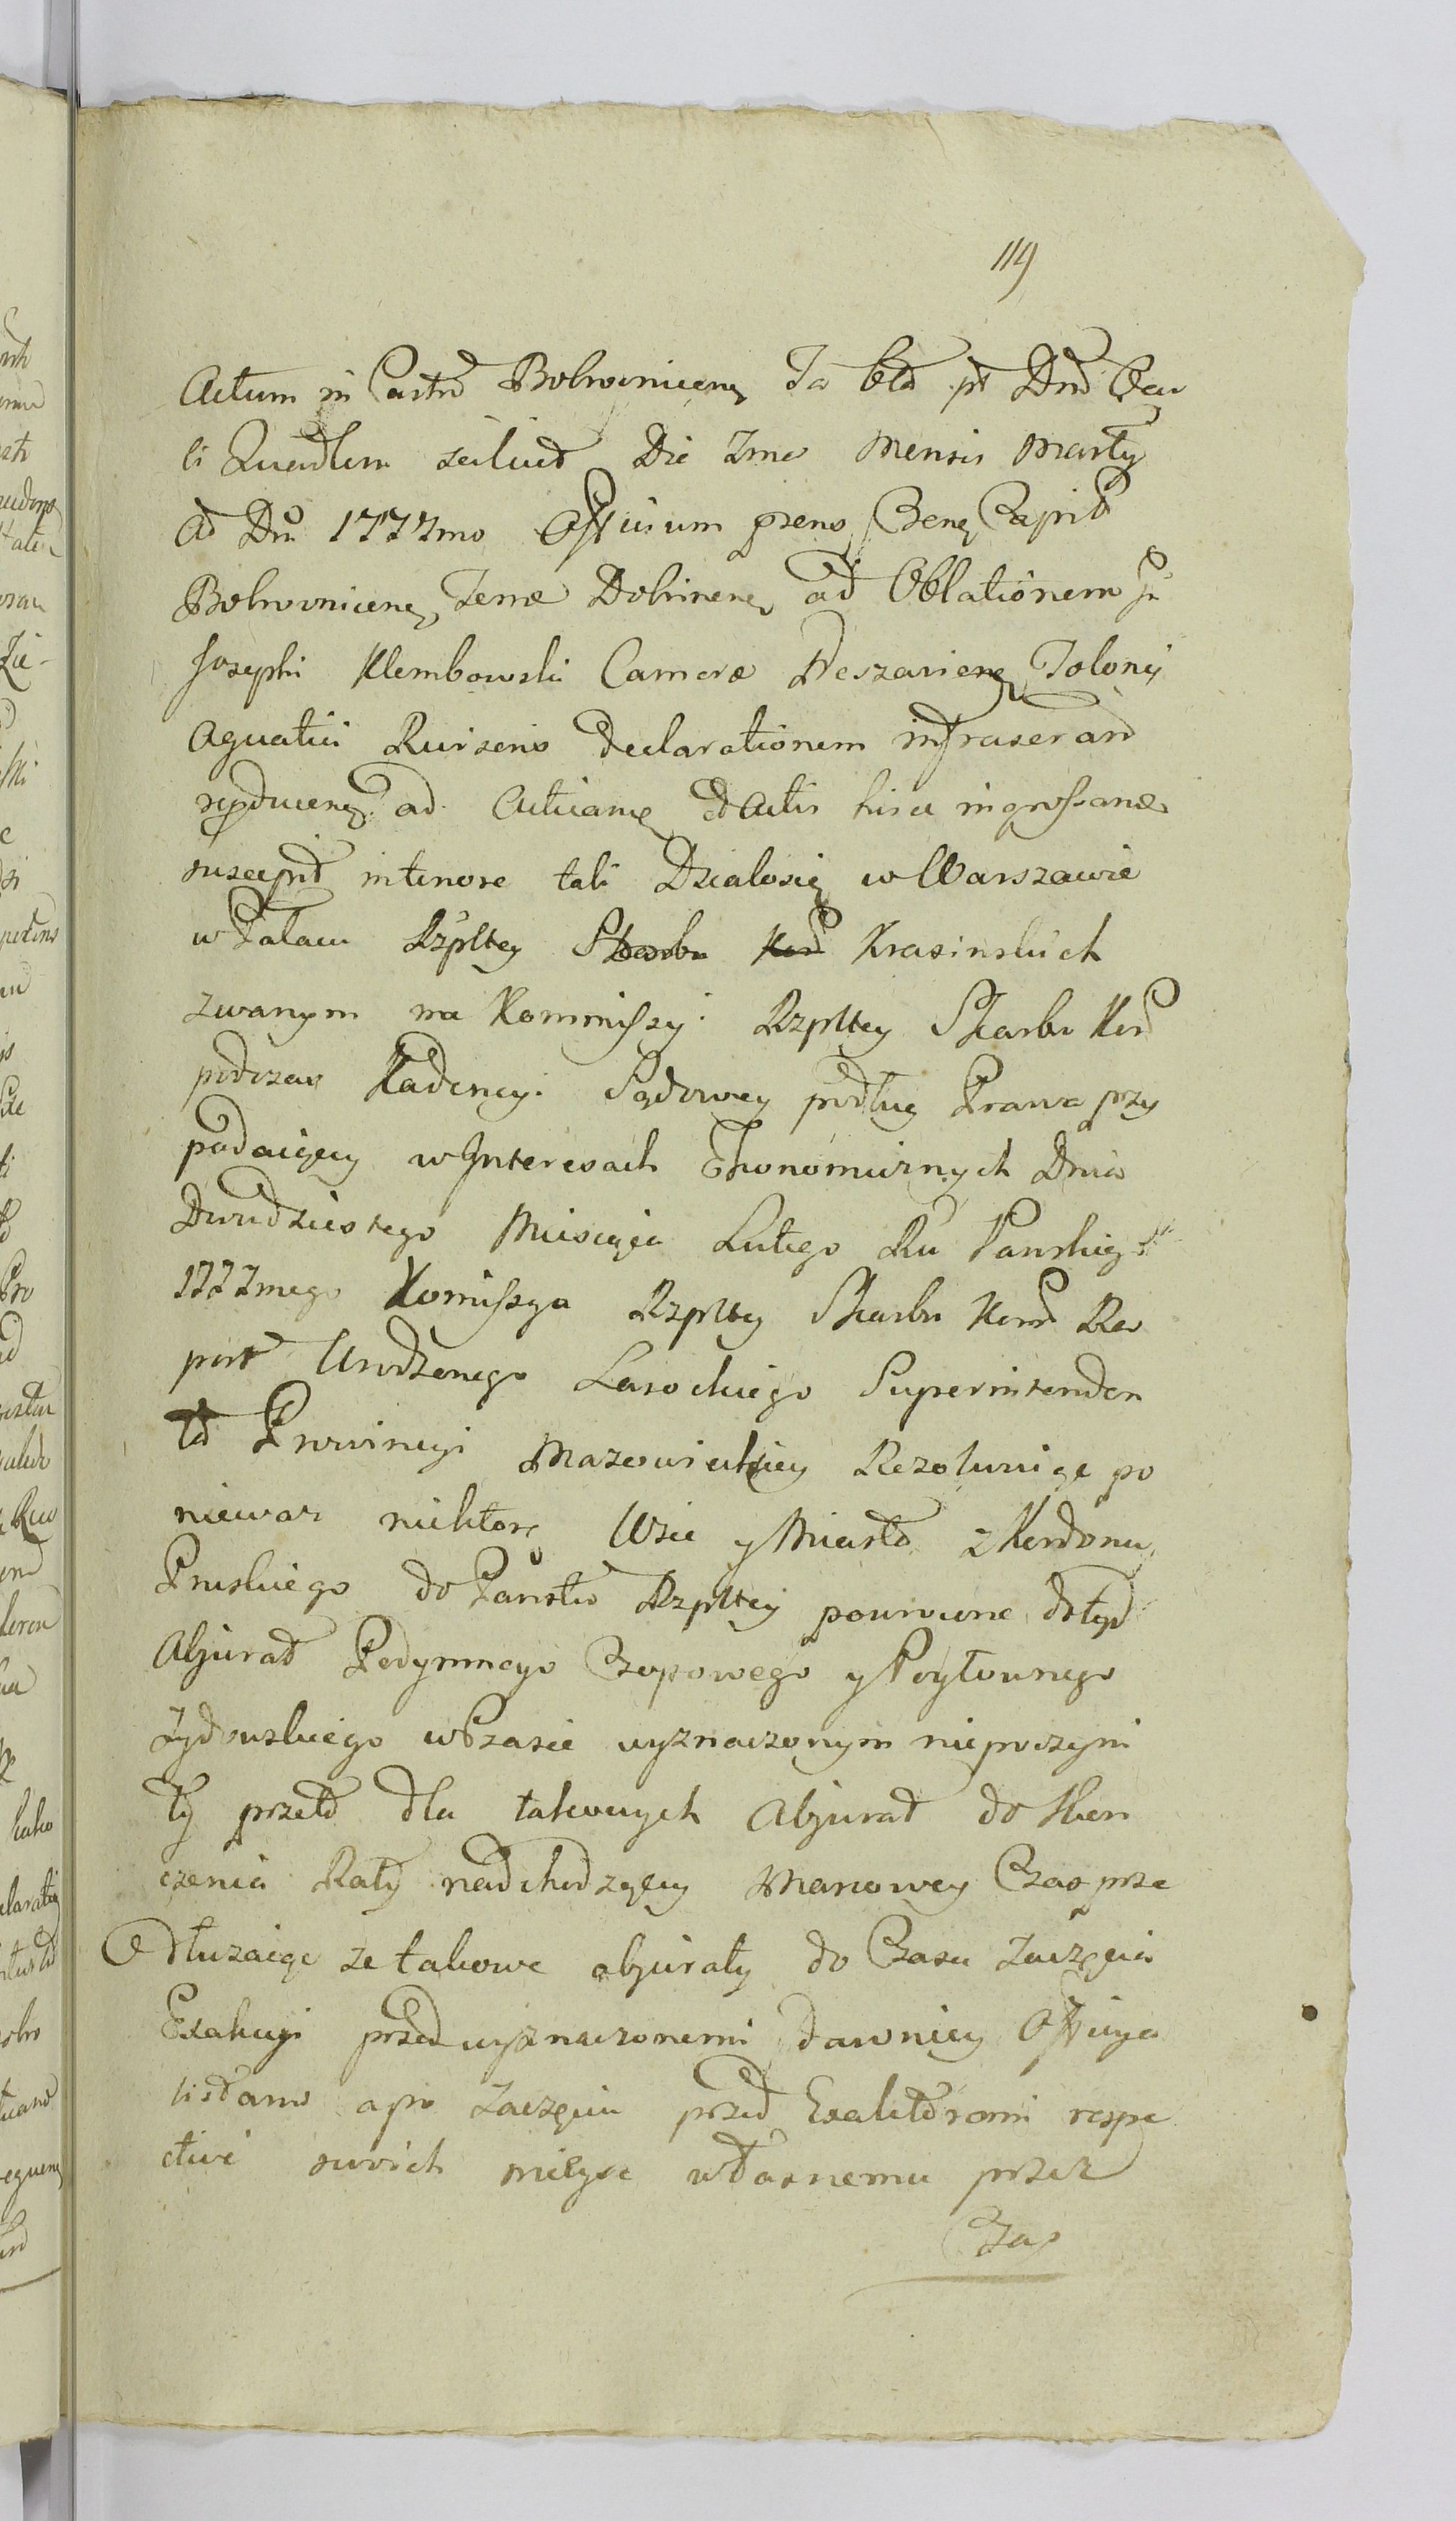 119
Actum in Castro Bobrownicen Sabbo pt Dncam
li Quadlem scilicet Die 1ma Mensis Marty
Ao Dni 1777mo Officium prens Bene Capit
Bobrownicen Terrae Dobrinen ad Oblationem Gsi
Josephi Klembowski Camerae Teloney
Aquatici declarationem infrascr
reproducen ad Acticand et Actis hisce ingrossand
suscepit in tenore tali Działosię w Warszawie
w Pałacu Rzpltey Skarbu Kor Krasinskich
zwanym na Kommissyi Rzpltey Skarbu Kor
podczas Kadencyi Sądowey podług Prawa przy
padaiący w Interesach Ekonomicznych Dnia
Dwudziestego Miesiąca Lutego Ru Panskiego
1777mego Komissya Rzpltey Skarbu Koro Ra
port Urodzonego Lasockiego Superintenden
ta Prowincyi Mazowieckiey Rezolwuiąc po
niewaz niektore Wsie y Miasta z Kordonu
Pruskiego do Panstw Rzpltey powrocone dotąd
Abjurat Podymnego Czopowego y Pogłownego
Zydowskiego w Czasie wyznaczonym niepoczyni
ły przeto dla takowych Abjurat do Skon
czenia Raty nadchodzący Marcowey Czas prze
dłuzaiąc ze takowe abjuraty do Czasu Zaczęcia
Exakcyi przed wyznaczonemi dawniey Officya
listami a po Zaczęciu przed Exaktorami respe
ctive swoich mieysc własnemu przez
Czas